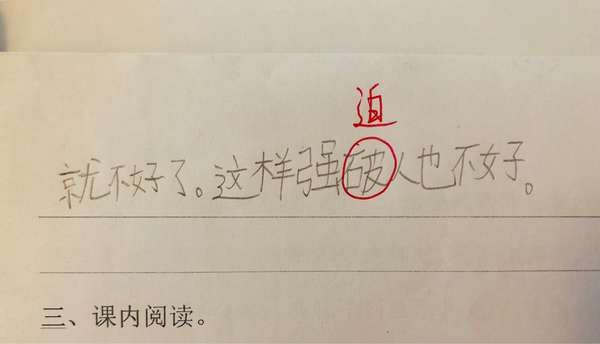 迫
就不好了。这样强破人也不好。
三、课内阅读。